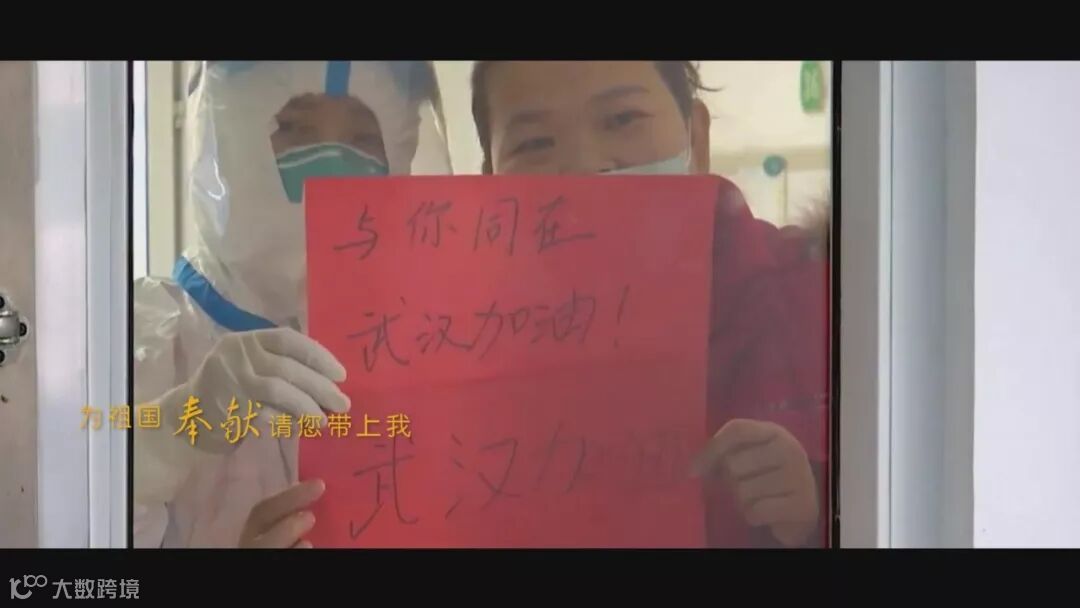 与你同在
武汉加油!
武汉加
为祖国奉献请您带上我
大数跨境